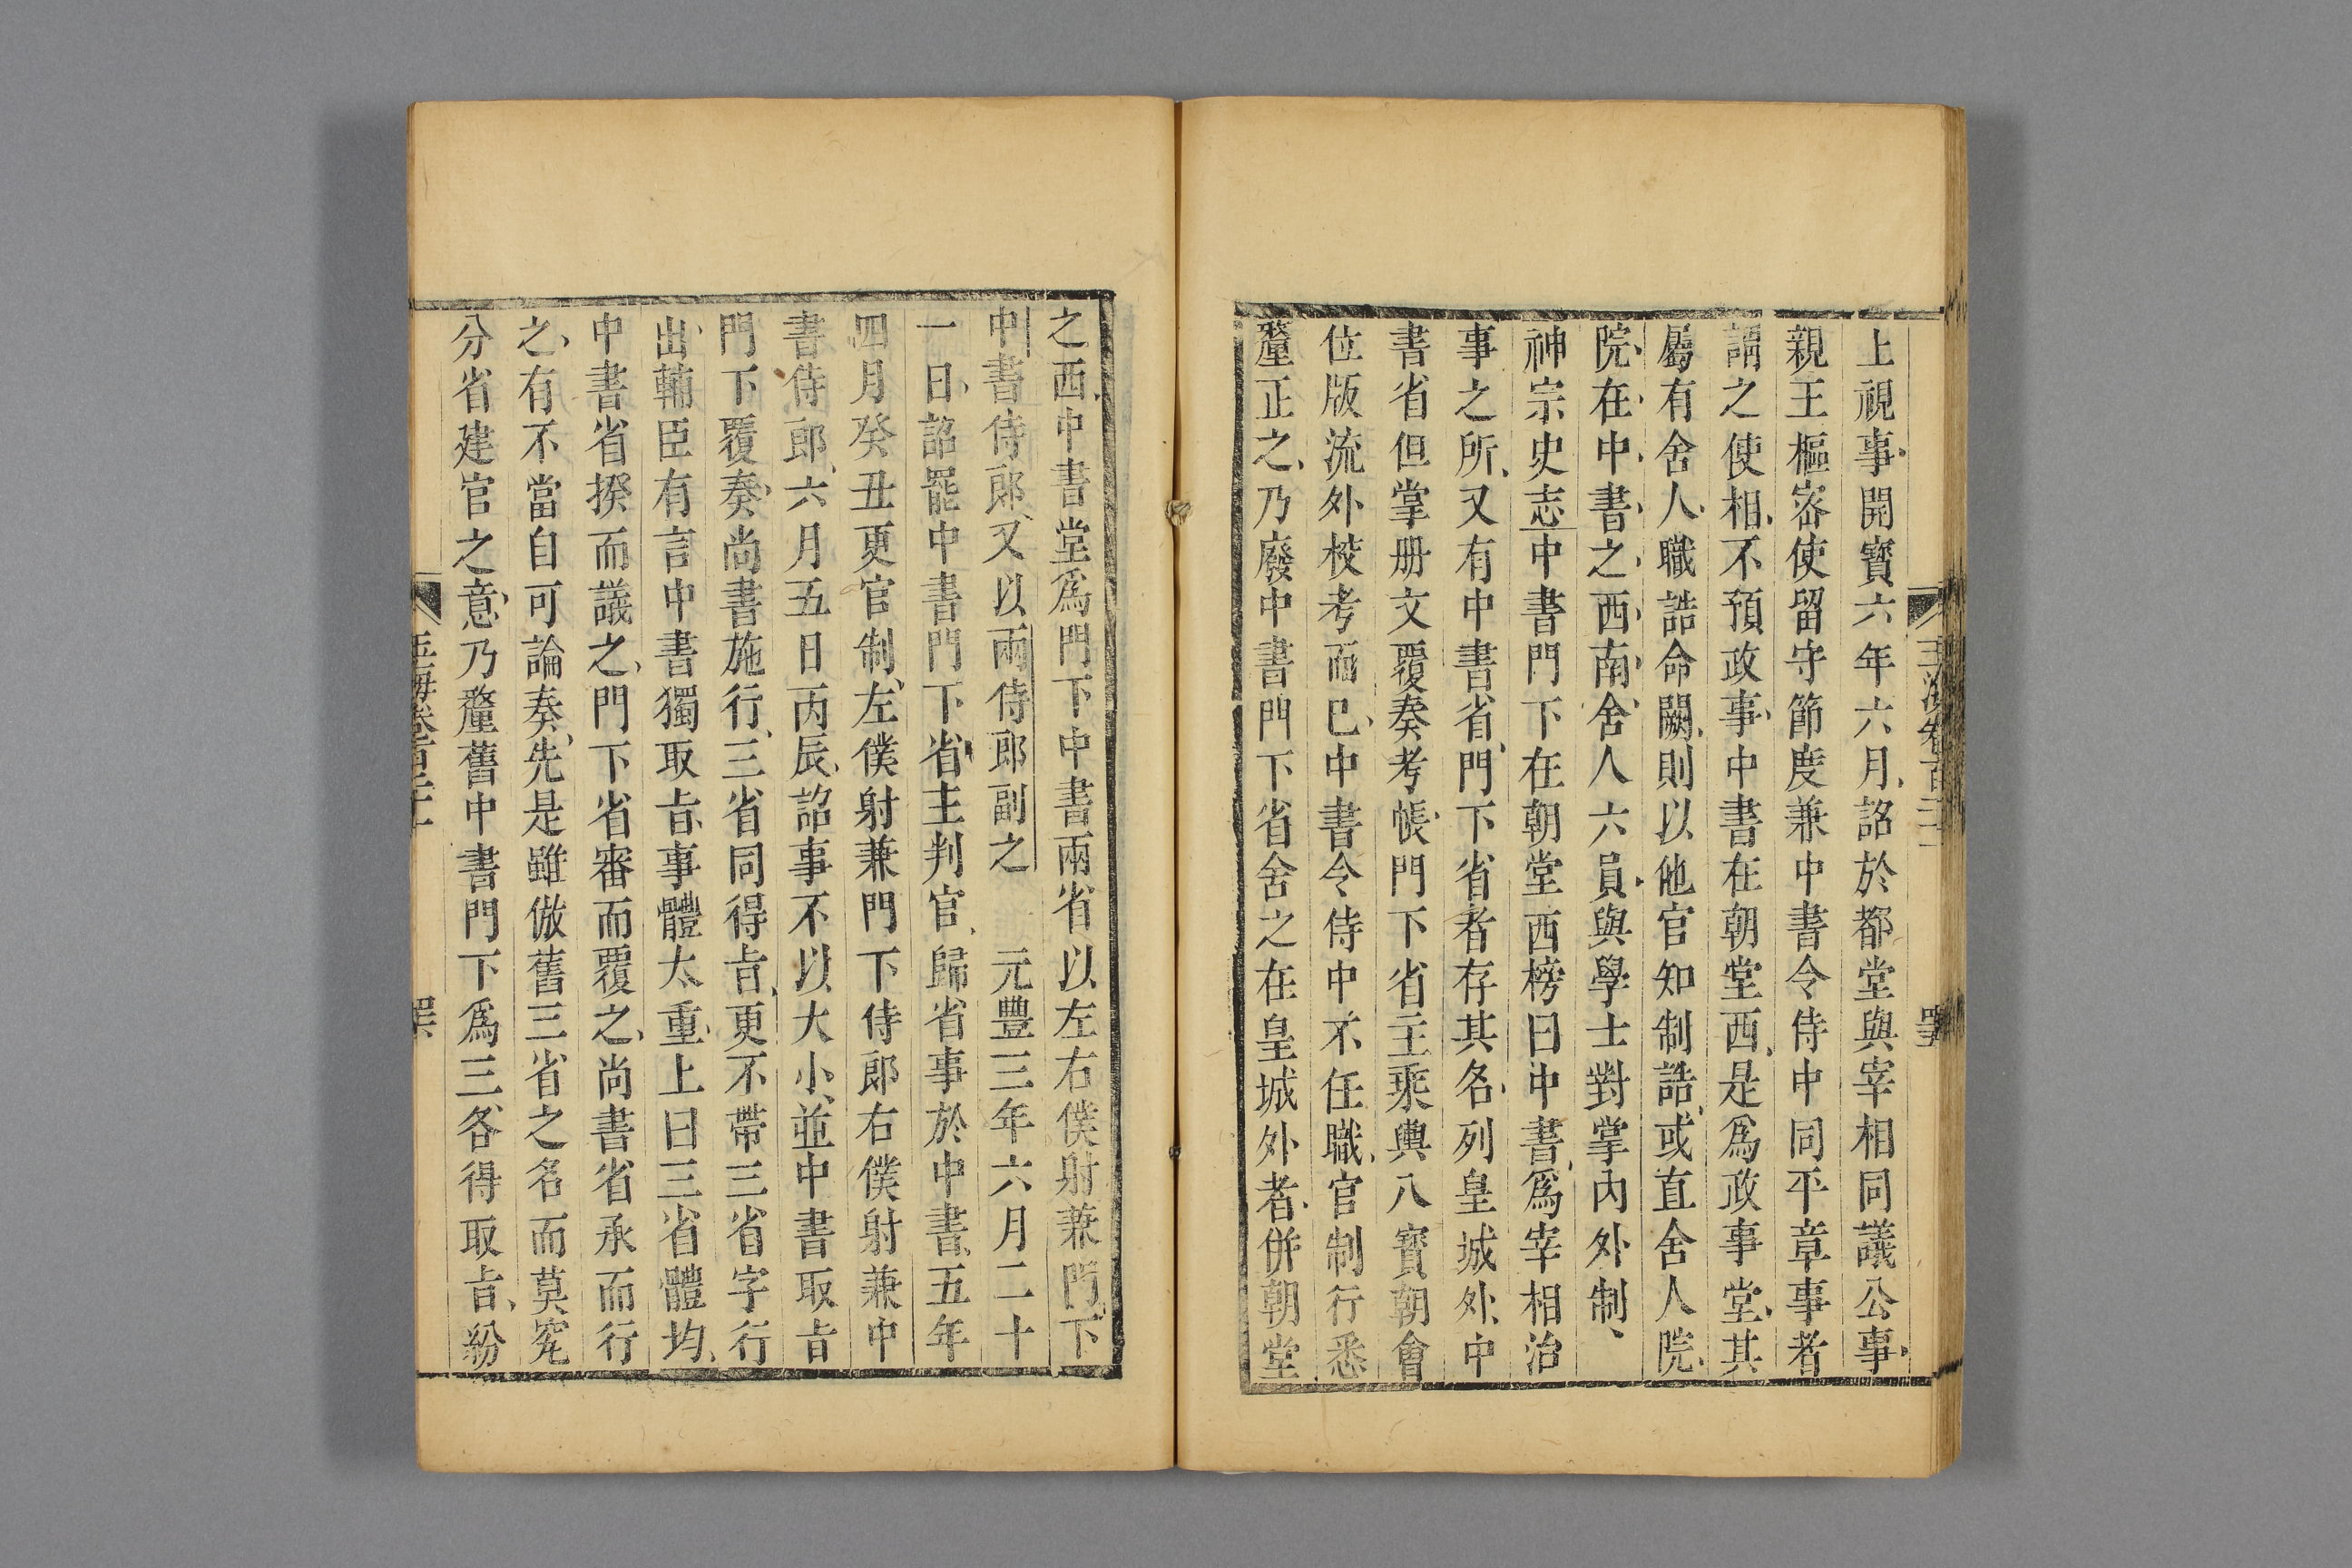 上視事開寶六年六月詔於都堂與宰相同議公事
親王樞宻使留守節度兼中書令侍中同平章事者
謂之使相不預政事中書在朝堂西是爲政事堂其
屬有舍人職誥命闕則以他官知制誥或直舍人院
院在中書之西南舍人六員與學士對掌内外制
神宗史志中書門下在朝堂西榜曰中書爲宰相治
事之所又有中書省門下省者存其名列皇城外中
書省但掌册文覆奏考帳門下省主乘輿八寳朝會
位版流外校考而已中書令侍中不任職官制行悉
釐正之乃廢中書門下省舍之在皇城外者併朝堂
之西中書堂爲門下中書兩省以左右僕射兼門下
中書侍郎又以兩侍郎副之　元豐三年六月二十
一日詔罷中書門下省主判官歸省事於中書五年
四月癸丑更官制左僕射兼門下侍郎右僕射兼中
書侍郎六月五日丙辰詔事不以大小並中書取㫖
門下覆奏尚書施行三省同得㫖更不帶三省字行
出輔臣有言中書獨取㫖事體太重上曰三省體均
中書省揆而議之門下省審而覆之尚書省承而行
之有不當自可論奏先是雖倣舊三省之名而莫究
分省建官之意乃釐舊中書門下爲三各得取㫖紛